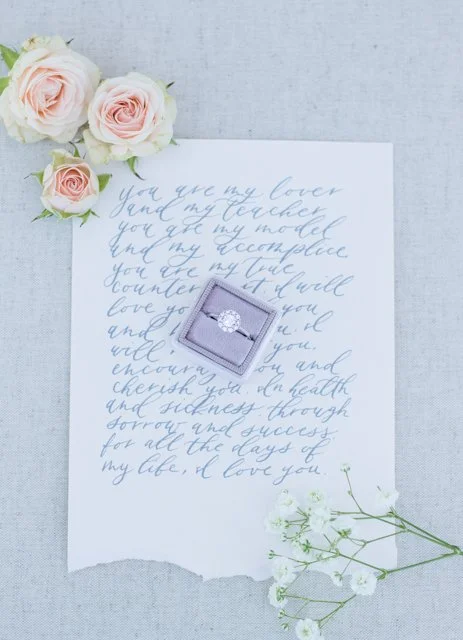 you are my lover
and my teacher
you are my model
and my accomplice
you are my true
counter t I will
love yo you
and u. I
will, you,
encoura ou and
cherish you. In health
and sickness. through
sorrow and success
for all the days of
my life, I love you.